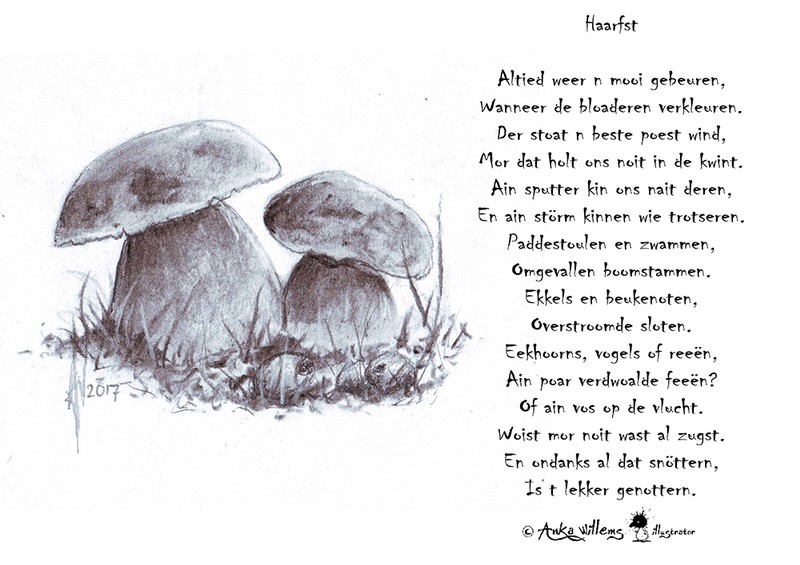 Haarfst
Altied weer n mooi gebeuren,
Wanneer de bloaderen verkleuren.
Der stoat n beste poest wind,
Mor dat holt ons noit in de kwint.
Ain sputter kin ons nait deren,
En ain störm kinnen wie trotseren.
Paddestoulen en zwammen,
Omgevallen boomstammen.
Ekkels en beukenoten,
Overstroomde sloten.
Eekhoorns, vogels of reeën,
Ain poar verdwoalde feeën?
Of ain vos op de vlucht.
Woist mor noit wast al zugst.
En ondanks al dat snöttern,
Is t lekker genottern.
© Anka Willems illustrator
AW 2017